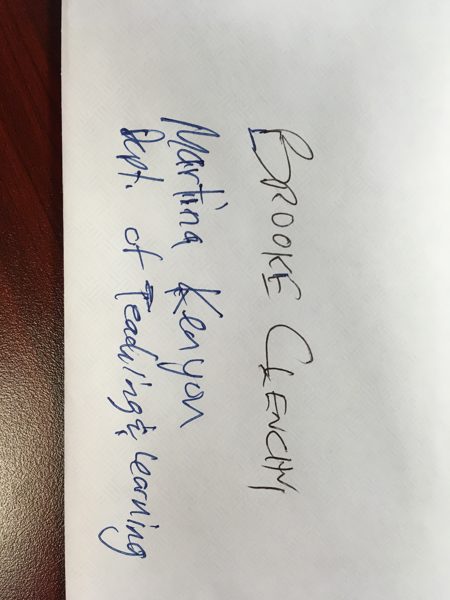 BROOKE CLENCHY
Martina Kenyon
Dept. of Teaching & Learning